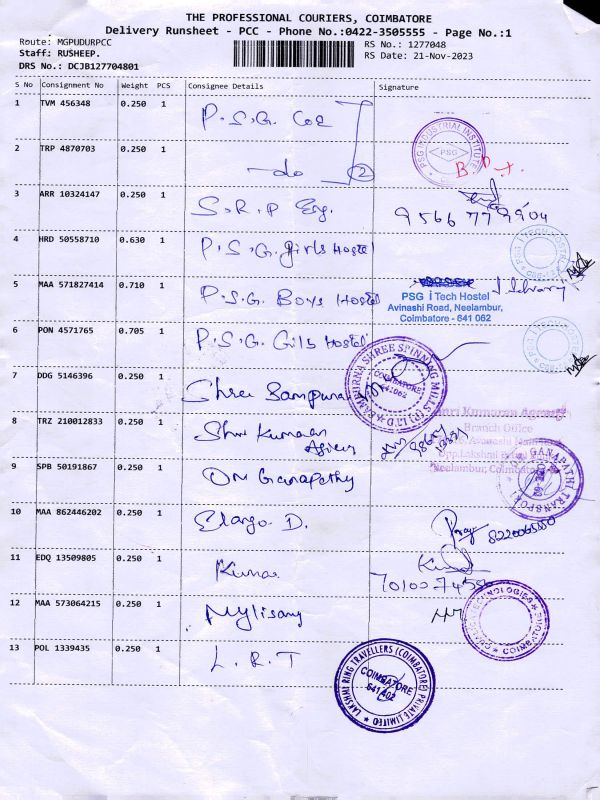 THE PROFESSIONAL COURIERS, COIMBATORE
Delivery Runsheet - PCC - Phone No.:0422-3505555 - Page No.:1
Route: MGPUDURPCC
RS No.: 1277048
Staff: RUSHEEP.
RS Date: 21-Nov-2023
DRS No.: DCJB127704801
S No Consignment No Weight PCS Consignee Details Signature
1 TVM 456348 0.250 1 P.S.G. COE
PSG INDUSTRIAL INSTITUTE
PSG
2 TRP 4870703 0.250 1 -do- 2
3 ARR 10324147 0.250 1 S.R.P Eng.
4 HRD 50558710 0.630 1 P.S.G. Girls Hostel
5 MAA 571827414 0.710 1 P.S.G. Boys Hostel
PSG i Tech Hostel
Avinashi Road, Neelambur,
Coimbatore - 641 062
6 PON 4571765 0.705 1 P.S.G. Gils Hostel
7 DDG 5146396 0.250 1 Shree
SHREE SPINNING MILLS (P) LTD
COIMBATORE
641062
8 TRZ 210012833 0.250 1 Shri Kumaran
Shri Kumaran Agency
Branch Office
Neelambur, Coimbatore
9 SPB 50191867 0.250 1 OM Ganapathy
GANAPATHI TRANSPORT
10 MAA 862446202 0.250 1 Elango D.
11 EDQ 13509805 0.250 1 Kumar
12 MAA 573064215 0.250 1 Mylisamy
13 POL 1339435 0.250 1 L.R.T
LAKSHMI RING TRAVELLERS (COIMBATORE) PRIVATE LIMITED
COIMBATORE
641402